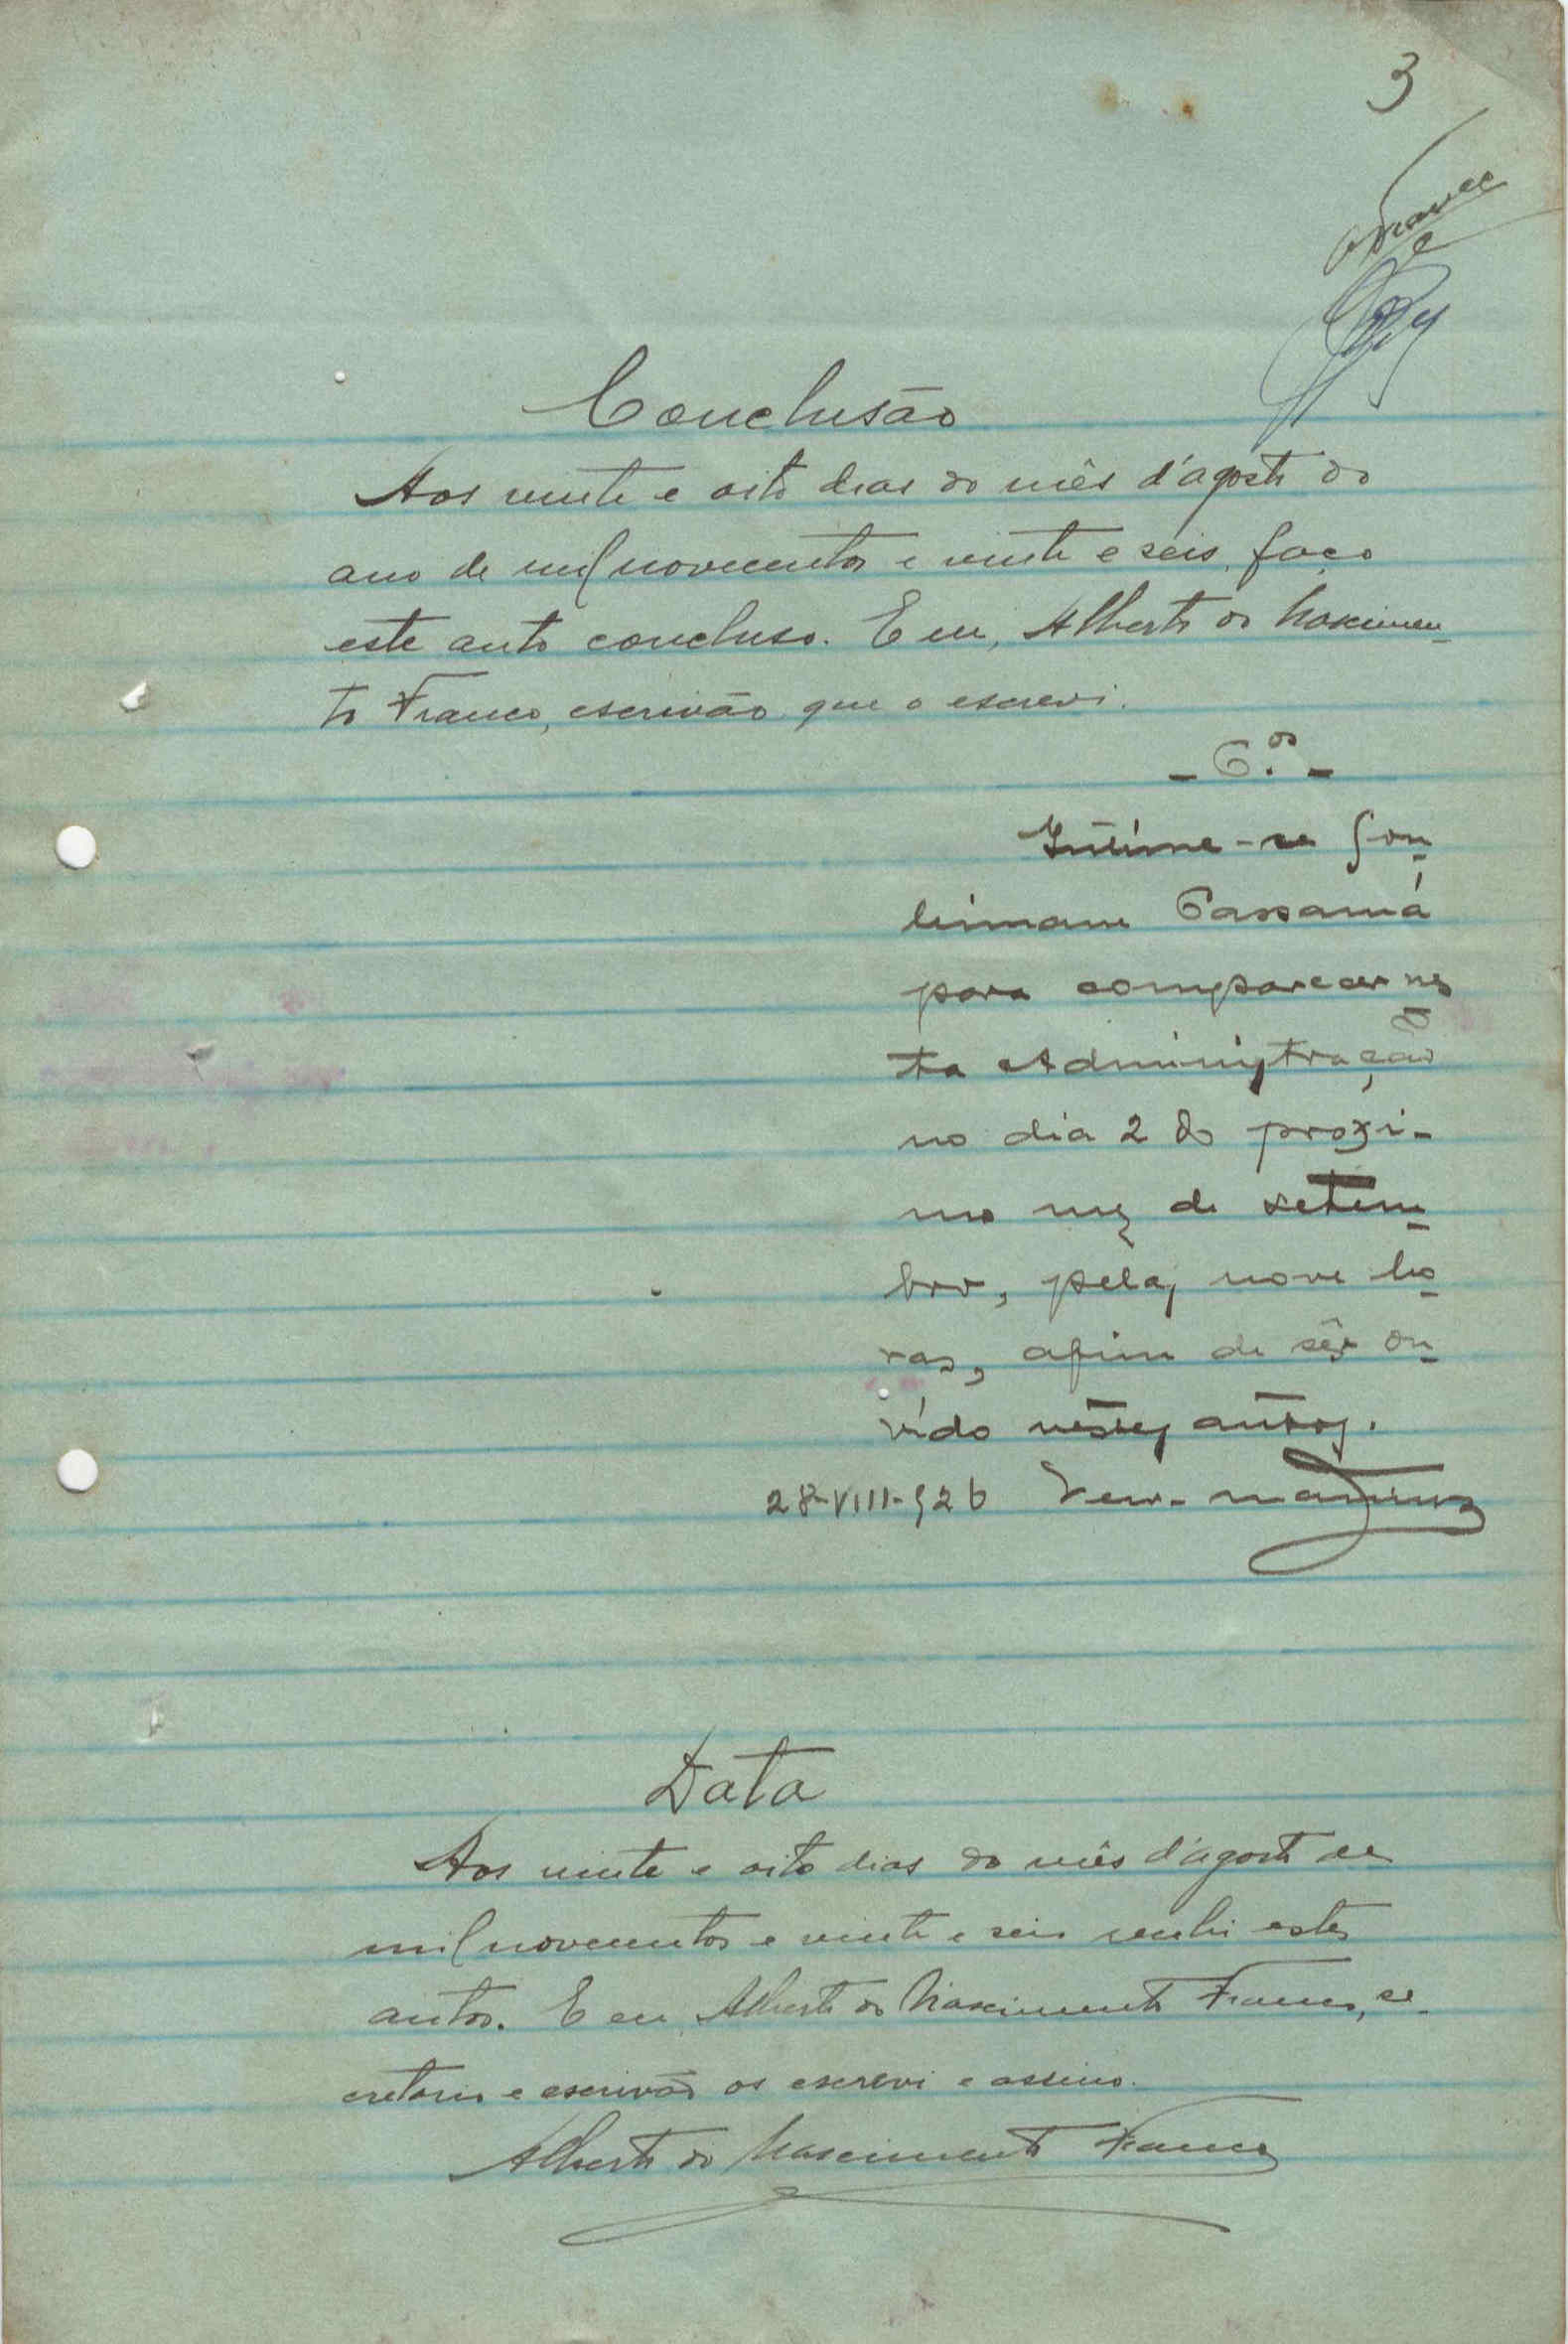 3
Franco
Conclusão
Aos vinte e oito dias do mês d'agosto do
ano de mil novecentos e vinte e seis, faço
este auto concluso. E eu, Alberto do Nascimen-
to Franco, escrivão que o escrevi.
- C.os -
Intime-se Sou-
leimane Cassamá
para comparecer nes-
ta Administração
no dia 2 do proxi-
mo mez de setem-
bro, pelas nove ho-
ras, afim de sêr ou-
vído nestes autos.
28-VIII-926
Data
Aos vinte e oito dias do mês d'agosto de
mil novecentos e vinte e seis recebi estes
autos. E eu, Alberto do Nascimento Franco, se-
cretario e escrivão os escrevi e assino.
Alberto do Nascimento Franco